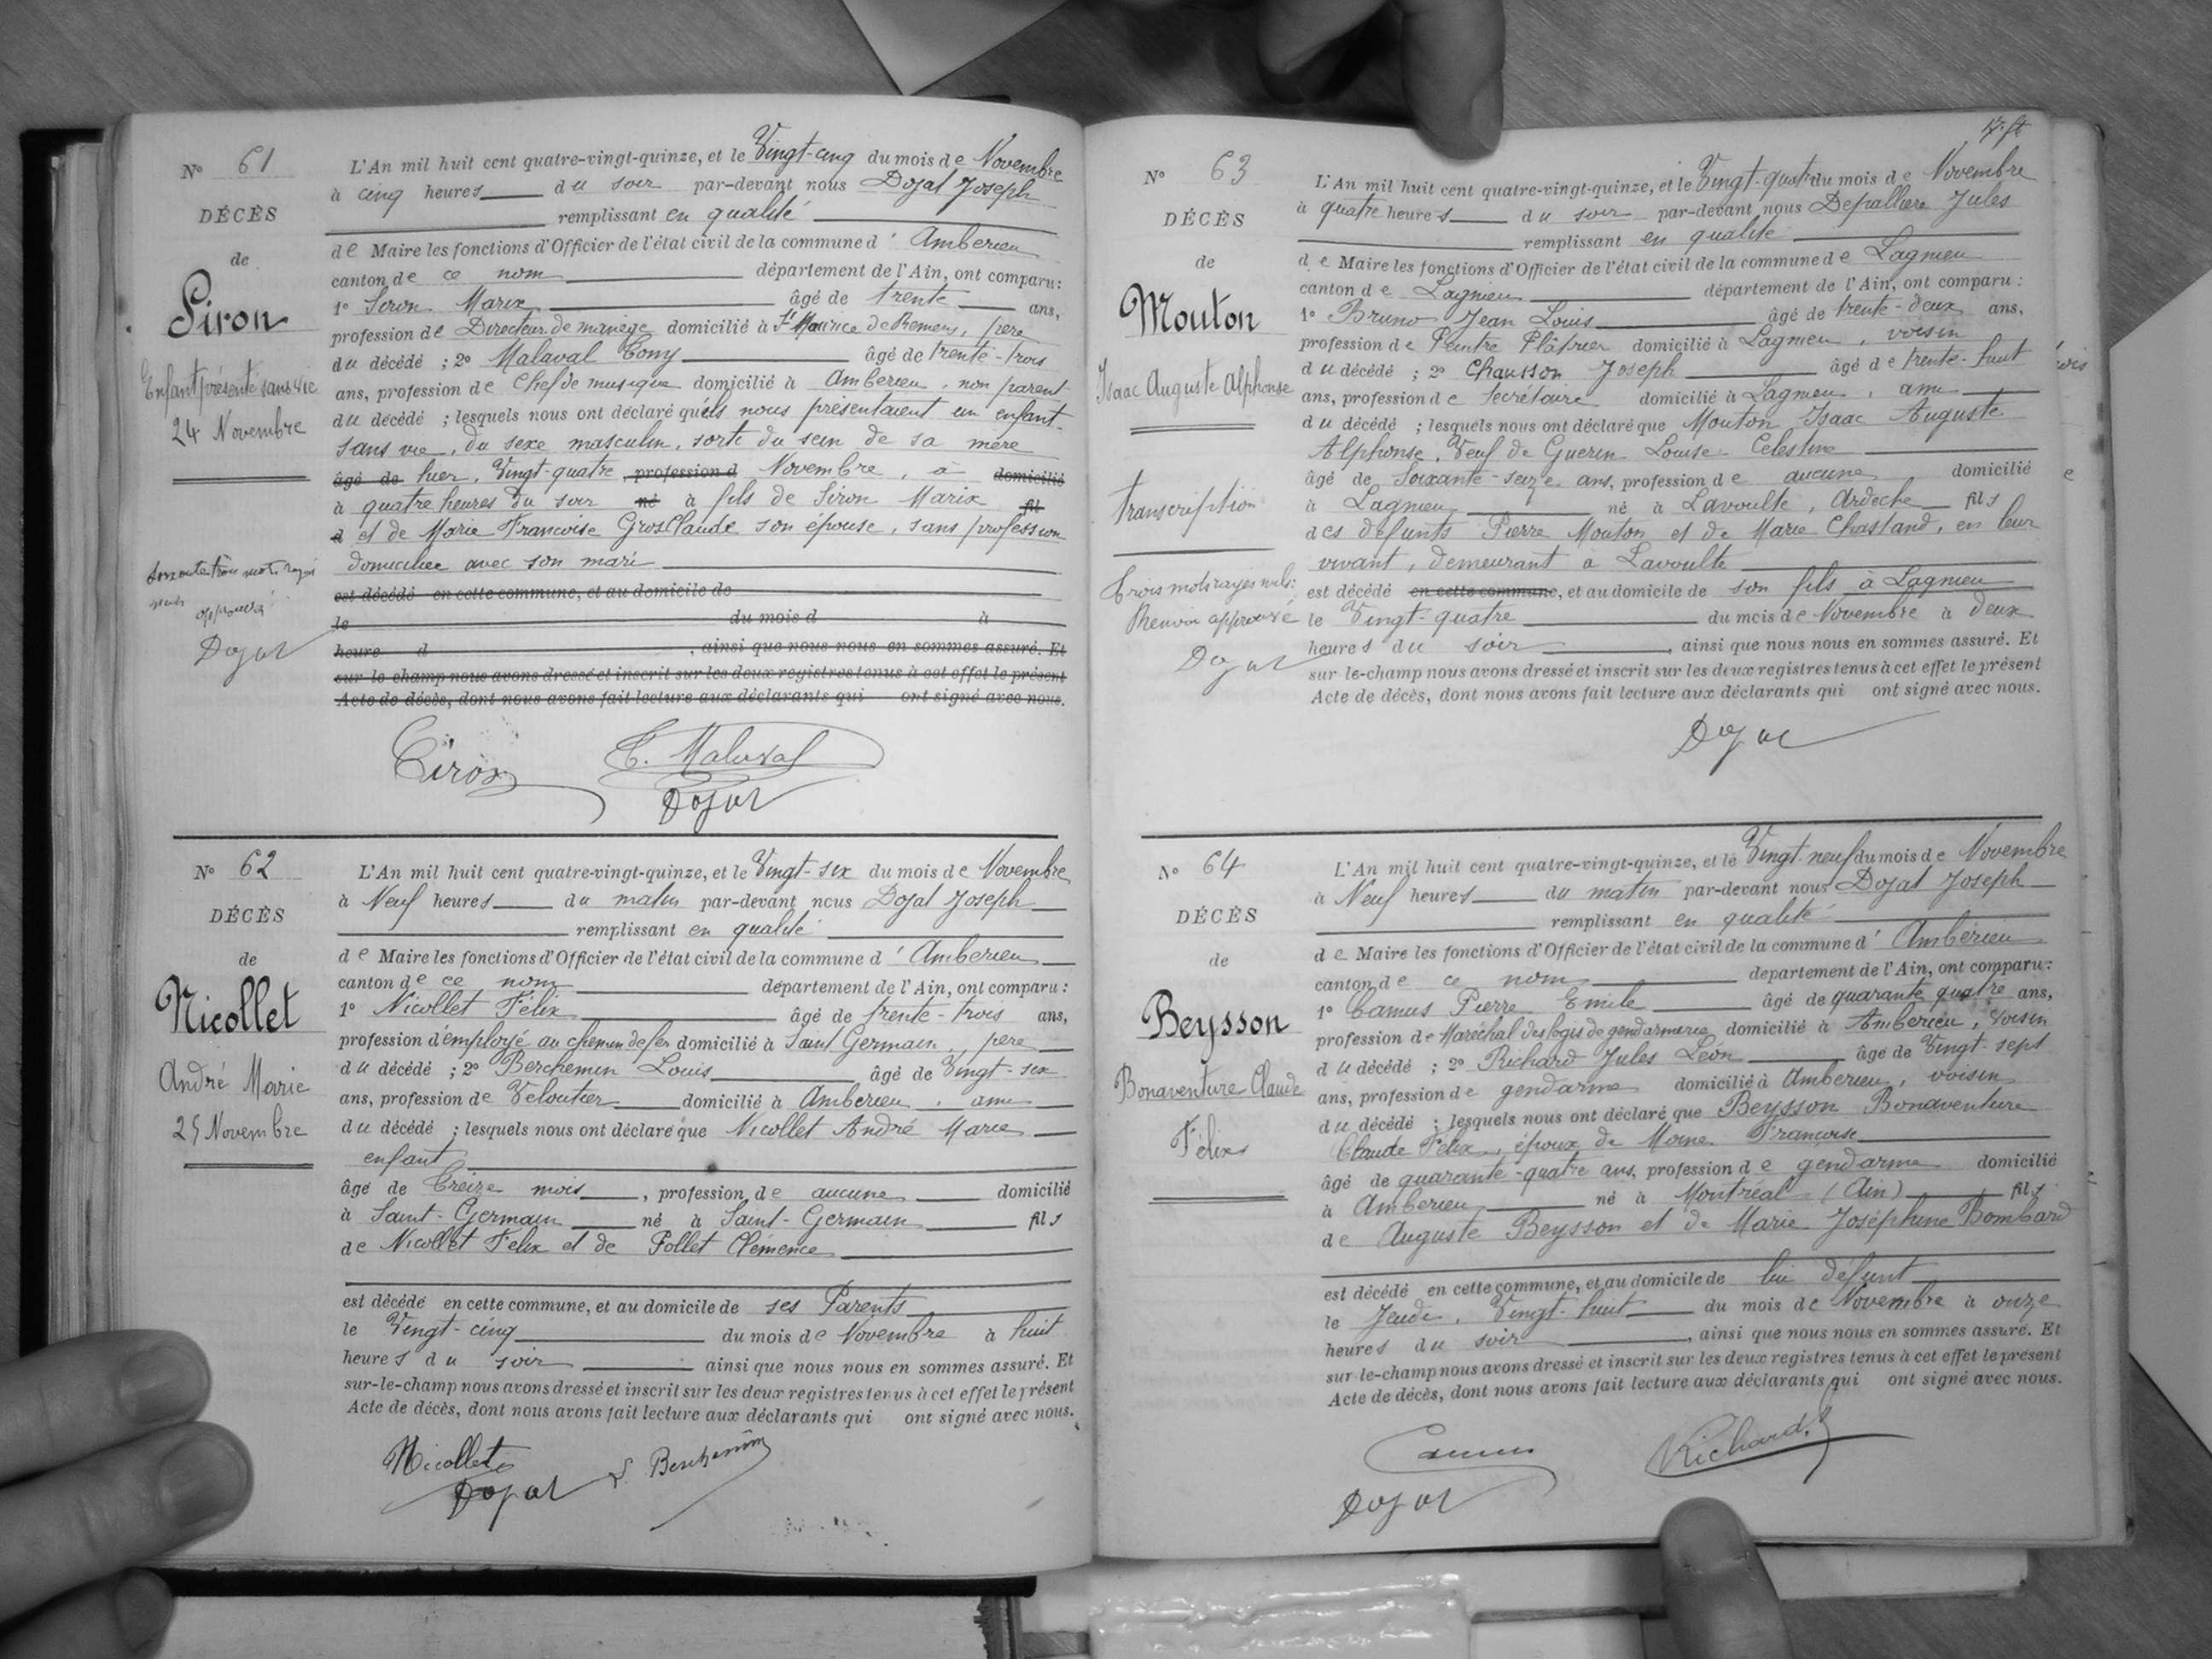 N° 61
DÉCÈS
de
Siron
Enfant présenté sans vie
24 Novembre
approuvé
Dojat
L'An mil huit cent quatre-vingt-quinze, et le Vingt-cinq du mois de Novembre
à cinq heures du soir par-devant nous Dojat Joseph
remplissant en qualité
de Maire les fonctions d'Officier de l'état civil de la commune d' Amberieu
canton de ce nom département de l'Ain, ont comparu:
1° Siron Marix âgé de trente ans,
profession de Directeur de manège domicilié à St Maurice de Remens, père
du décédé ; 2° Malaval Tony âgé de trente-trois
ans, profession de Chef de musique domicilié à Amberieu, non parent
du décédé ; lesquels nous ont déclaré qu'ils nous présentaient un enfant
sans vie, du sexe masculin, sorti du sein de sa mère
âgé de hier, Vingt-quatre profession d Novembre, à domicilié
à quatre heures du soir né à fils de Siron Marix fil
d et de Marie Francoise GrosClaude son épouse, sans profession
domiciliée avec son mari
est décédé en cette commune, et au domicile de
le du mois d à
heure d , ainsi que nous nous en sommes assuré. Et
sur le champ nous avons dressé et inscrit sur les deux registres tenus à cet effet le présent
Acte de décès, dont nous avons fait lecture aux déclarants qui ont signé avec nous.
T. Malaval
Dojat
N° 62
DÉCÈS
de
Nicollet
André Marie
25 Novembre
L'An mil huit cent quatre-vingt-quinze, et le Vingt-six du mois de Novembre
à Neuf heures du matin par-devant nous Dojat Joseph
remplissant en qualité
de Maire les fonctions d'Officier de l'état civil de la commune d' Amberieu
canton de ce nom département de l'Ain, ont comparu :
1° Nicollet Félix âgé de trente-trois ans,
profession d'employé au chemin de fer domicilié à Saint Germain, père
du décédé ; 2° Berchemin Louis âgé de Vingt-six
ans, profession de Veloutier domicilié à Amberieu, ami
du décédé ; lesquels nous ont déclaré que Nicollet André Marie
enfant
âgé de treize mois, profession de aucune domicilié
à Saint-Germain né à Saint-Germain fils
de Nicollet Felix et de Pollet Clémence
est décédé en cette commune, et au domicile de ses Parents
le Vingt-cinq du mois de Novembre à huit
heures du soir ainsi que nous nous en sommes assuré. Et
sur-le-champ nous avons dressé et inscrit sur les deux registres tenus à cet effet le présent
Acte de décès, dont nous avons fait lecture aux déclarants qui ont signé avec nous.
Nicollet
Dojat L. Berchemin
N° 63
DÉCÈS
de
Mouton
Isaac Auguste Alphonse
transcription
Trois mots rayés nuls:
Renvoi approuvé
Dojat
L'An mil huit cent quatre-vingt-quinze, et le Vingt-quatre du mois de Novembre
à quatre heures du soir par-devant nous Depallière Jules
remplissant en qualité
de Maire les fonctions d'Officier de l'état civil de la commune de Lagnieu
canton de Lagnieu département de l'Ain, ont comparu :
1° Bruno Jean Louis âgé de trente-deux ans,
profession de Peintre Plâtrier domicilié à Lagnieu, voisin
du décédé ; 2° Chausson Joseph âgé de trente-huit
ans, profession de Secrétaire domicilié à Lagnieu, ami
du décédé ; lesquels nous ont déclaré que Mouton Isaac Auguste
Alphonse, Veuf de Guerin Louise Celestine
âgé de Soixante-seize ans, profession de aucune domicilié
à Lagnieu né à Lavoulte, Ardeche fils
des défunts Pierre Mouton et de Marie Chastand, en leur
vivant, demeurant à Lavoulte
est décédé en cette commune, et au domicile de son fils à Lagnieu
le Vingt-quatre du mois de Novembre à deux
heures du soir, ainsi que nous nous en sommes assuré. Et
sur le-champ nous avons dressé et inscrit sur les deux registres tenus à cet effet le présent
Acte de décès, dont nous avons fait lecture aux déclarants qui ont signé avec nous.
Dojat
N° 64
DÉCÈS
de
Beysson
Bonaventure Claude
Félix
L'An mil huit cent quatre-vingt-quinze, et le Vingt-neuf du mois de Novembre
à Neuf heures du matin par-devant nous Dojat Joseph
remplissant en qualité
de Maire les fonctions d'Officier de l'état civil de la commune d' Amberieu
canton de ce nom département de l'Ain, ont comparu:
1° Camus Pierre Emile âgé de quarante quatre ans,
profession de Maréchal des logis de gendarmerie domicilié à Amberieu, voisin
du décédé ; 2° Richard Jules Léon âgé de Vingt-sept
ans, profession de gendarme domicilié à Amberieu, voisin
du décédé ; lesquels nous ont déclaré que Beysson Bonaventure
Claude Félix, époux de Moine Francoise
âgé de quarante-quatre ans, profession de gendarme domicilié
à Amberieu né à Montréal (Ain) fils
de Auguste Beysson et de Marie Joséphine Bombard
est décédé en cette commune, et au domicile de lui défunt
le Jeudi, Vingt-huit du mois de Novembre à onze
heures du soir, ainsi que nous nous en sommes assuré. Et
sur-le-champ nous avons dressé et inscrit sur les deux registres tenus à cet effet le présent
Acte de décès, dont nous avons fait lecture aux déclarants qui ont signé avec nous.
Camus Richard
Dojat